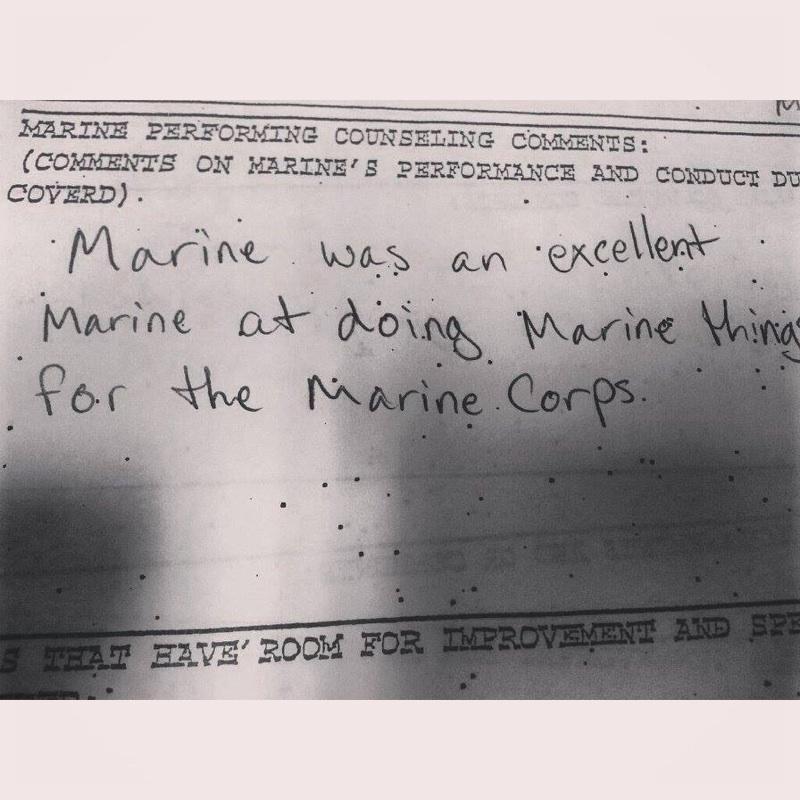 MARINE PERFORMING COUNSELING COMMENTS:
(COMMENTS ON MARINE'S PERFORMANCE AND CONDUCT DU
COVERD).
Marine was an excellent
Marine at doing Marine things
for the Marine Corps.
S THAT HAVE ROOM FOR IMPROVEMENT AND SPE